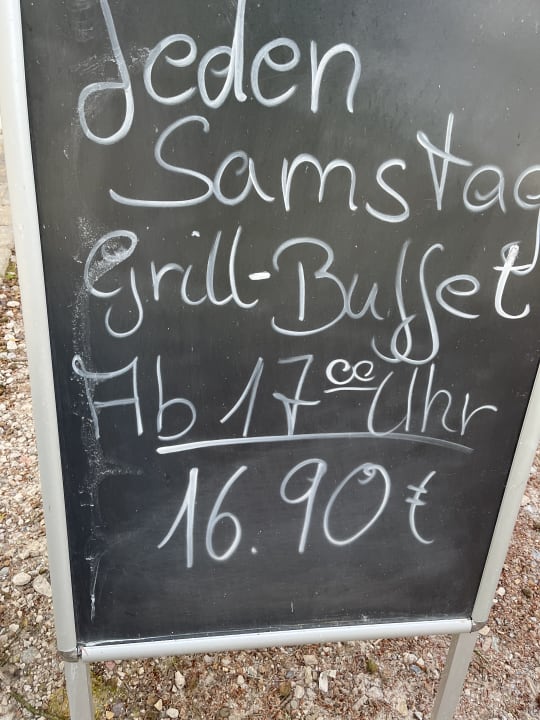 Jeden
Samstag
Grill-Buffet
Ab 17 00 Uhr
16.90 €